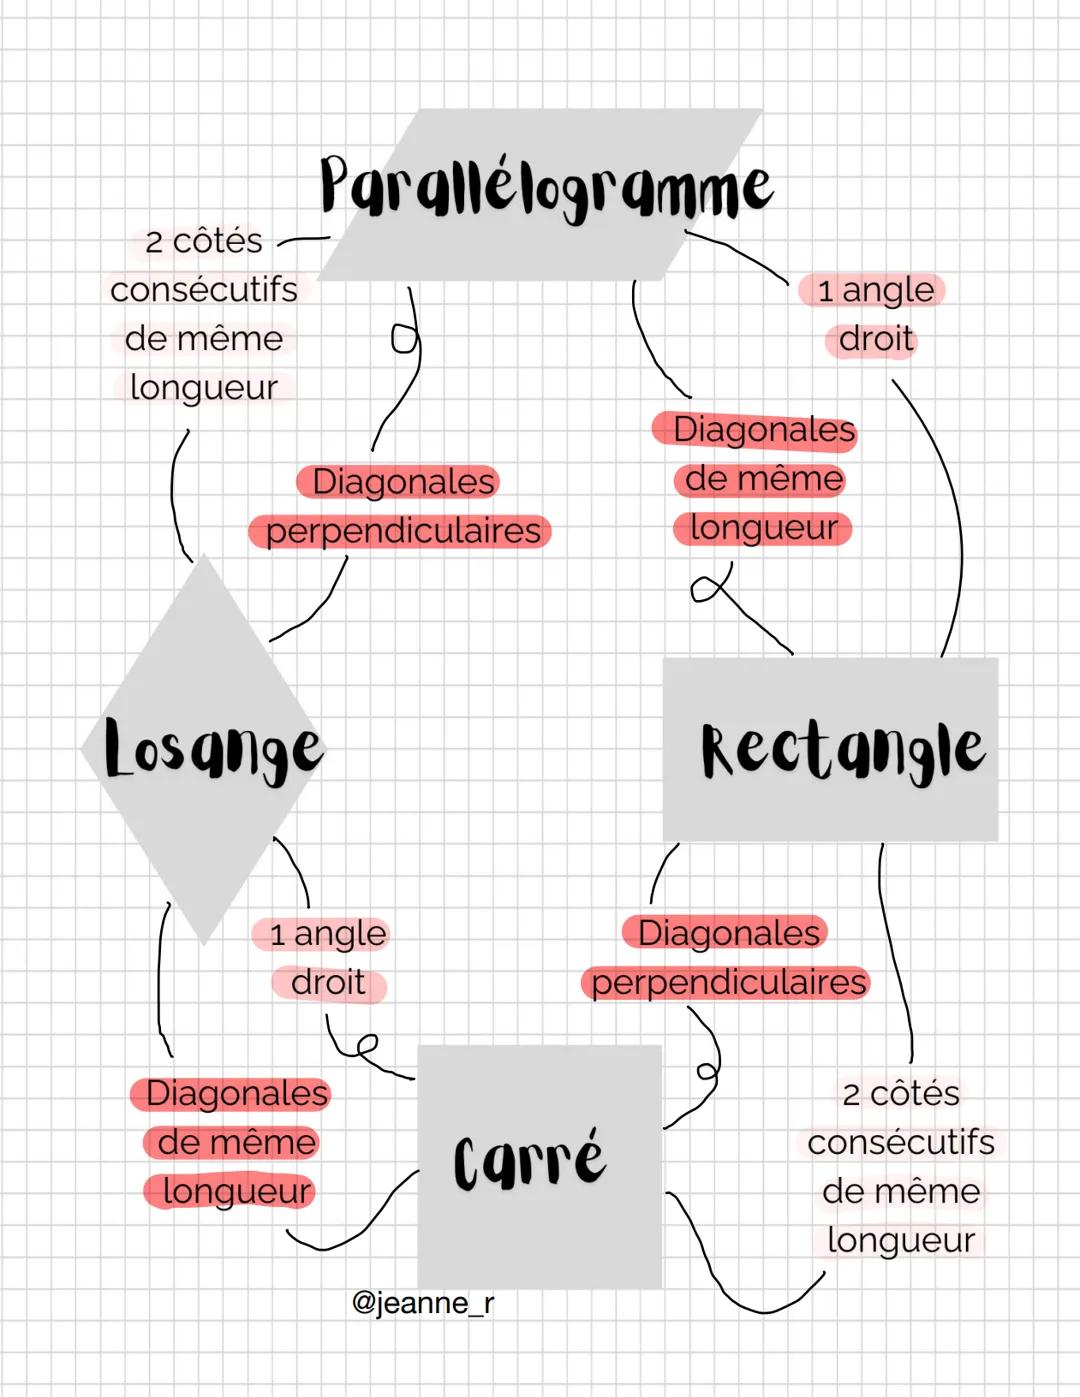 Parallélogramme
2 côtés
consécutifs
de même
longueur
1 angle
droit
Diagonales
perpendiculaires
Diagonales
de même
longueur
Losange
Rectangle
1 angle
droit
Diagonales
perpendiculaires
Diagonales
de même
longueur
Carré
2 côtés
consécutifs
de même
longueur
@jeanne_r